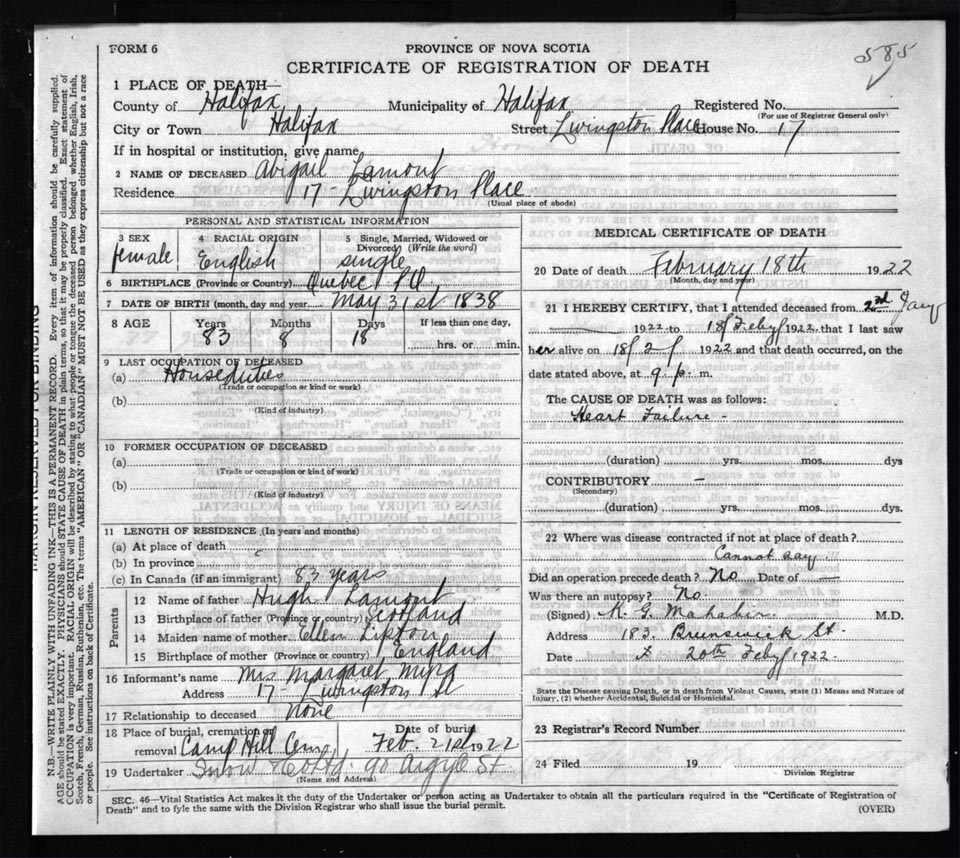 FORM 6
PROVINCE OF NOVA SCOTIA
585
CERTIFICATE OF REGISTRATION OF DEATH
1 PLACE OF DEATH—
County of Halifax Municipality of Halifax Registered No.
(For use of Registrar General only)
City or Town Halifax Street Livingston Place House No. 17
If in hospital or institution, give name
2 NAME OF DECEASED Abigail Lamont
Residence 17 - Livingston Place
(Usual place of abode)
PERSONAL AND STATISTICAL INFORMATION
3 SEX female
4 RACIAL ORIGIN English
5 Single, Married, Widowed or Divorced (Write the word) single
6 BIRTHPLACE (Province or Country) Quebec P.Q.
7 DATE OF BIRTH (month, day and year) May 31st 1838
8 AGE Years Months Days If less than one day,
83 8 18 hrs. or min.
9 LAST OCCUPATION OF DECEASED
(a) Houseduties
(Trade or occupation or kind or work)
(b)
(Kind of industry)
10 FORMER OCCUPATION OF DECEASED
(a)
(Trade or occupation or kind of work)
(b)
(Kind of industry)
11 LENGTH OF RESIDENCE (In years and months)
(a) At place of death
(b) In province
(c) In Canada (if an immigrant) 83 years
Parents
12 Name of father Hugh Lamont
13 Birthplace of father (Province or country) Scotland
14 Maiden name of mother Ellen Lipton
15 Birthplace of mother (Province or country) England
16 Informant's name Mrs Margaret
Address 17 - Livingston Pl
17 Relationship to deceased None
18 Place of burial, cremation or removal Camp Hill Cem. Date of burial Feb. 21st 1922
19 Undertaker Snow & Co Ltd. 90 Argyle St
(Name and Address)
MEDICAL CERTIFICATE OF DEATH
20 Date of death February 18th 1922
(Month, day and year)
21 I HEREBY CERTIFY, that I attended deceased from 2nd Jany
1922 to 18/Feby/1922 that I last saw
her alive on 18/2/1922 and that death occurred, on the
date stated above, at 9 p. m.
The CAUSE OF DEATH was as follows:
Heart Failure -
(duration) yrs. mos. dys
CONTRIBUTORY —
(Secondary)
(duration) yrs. mos. dys.
22 Where was disease contracted if not at place of death?
Cannot say
Did an operation precede death? No Date of —
Was there an autopsy? No.
(Signed) K. G. Mahabir M.D.
Address 183. Brunswick St.
Date 20th Feby 1922
State the Disease causing Death, or in death from Violent Causes, state (1) Means and Nature of
Injury, (2) whether Accidental, Suicidal or Homicidal.
23 Registrar's Record Number
24 Filed 19
Division Registrar
SEC. 46—Vital Statistics Act makes it the duty of the Undertaker or person acting as Undertaker to obtain all the particulars required in the "Certificate of Registration of
Death" and to fyle the same with the Division Registrar who shall issue the burial permit.
(OVER)
MARGIN RESERVED FOR BINDING
N.B.—WRITE PLAINLY WITH UNFADING INK—THIS IS A PERMANENT RECORD. Every item of information should be carefully supplied.
AGE should be stated EXACTLY. PHYSICIANS should STATE CAUSE OF DEATH in plain terms, so that it may be properly classified. Exact statement of
OCCUPATION is very important. RACIAL ORIGIN will be described by stating to what people or tongue the deceased person belonged whether English, Irish,
Scotch, French, German, Russian, Ruthenian, etc. The terms "AMERICAN" OR "CANADIAN" MUST NOT BE USED as they express citizenship but not a race
or people. See instructions on back of Certificate.